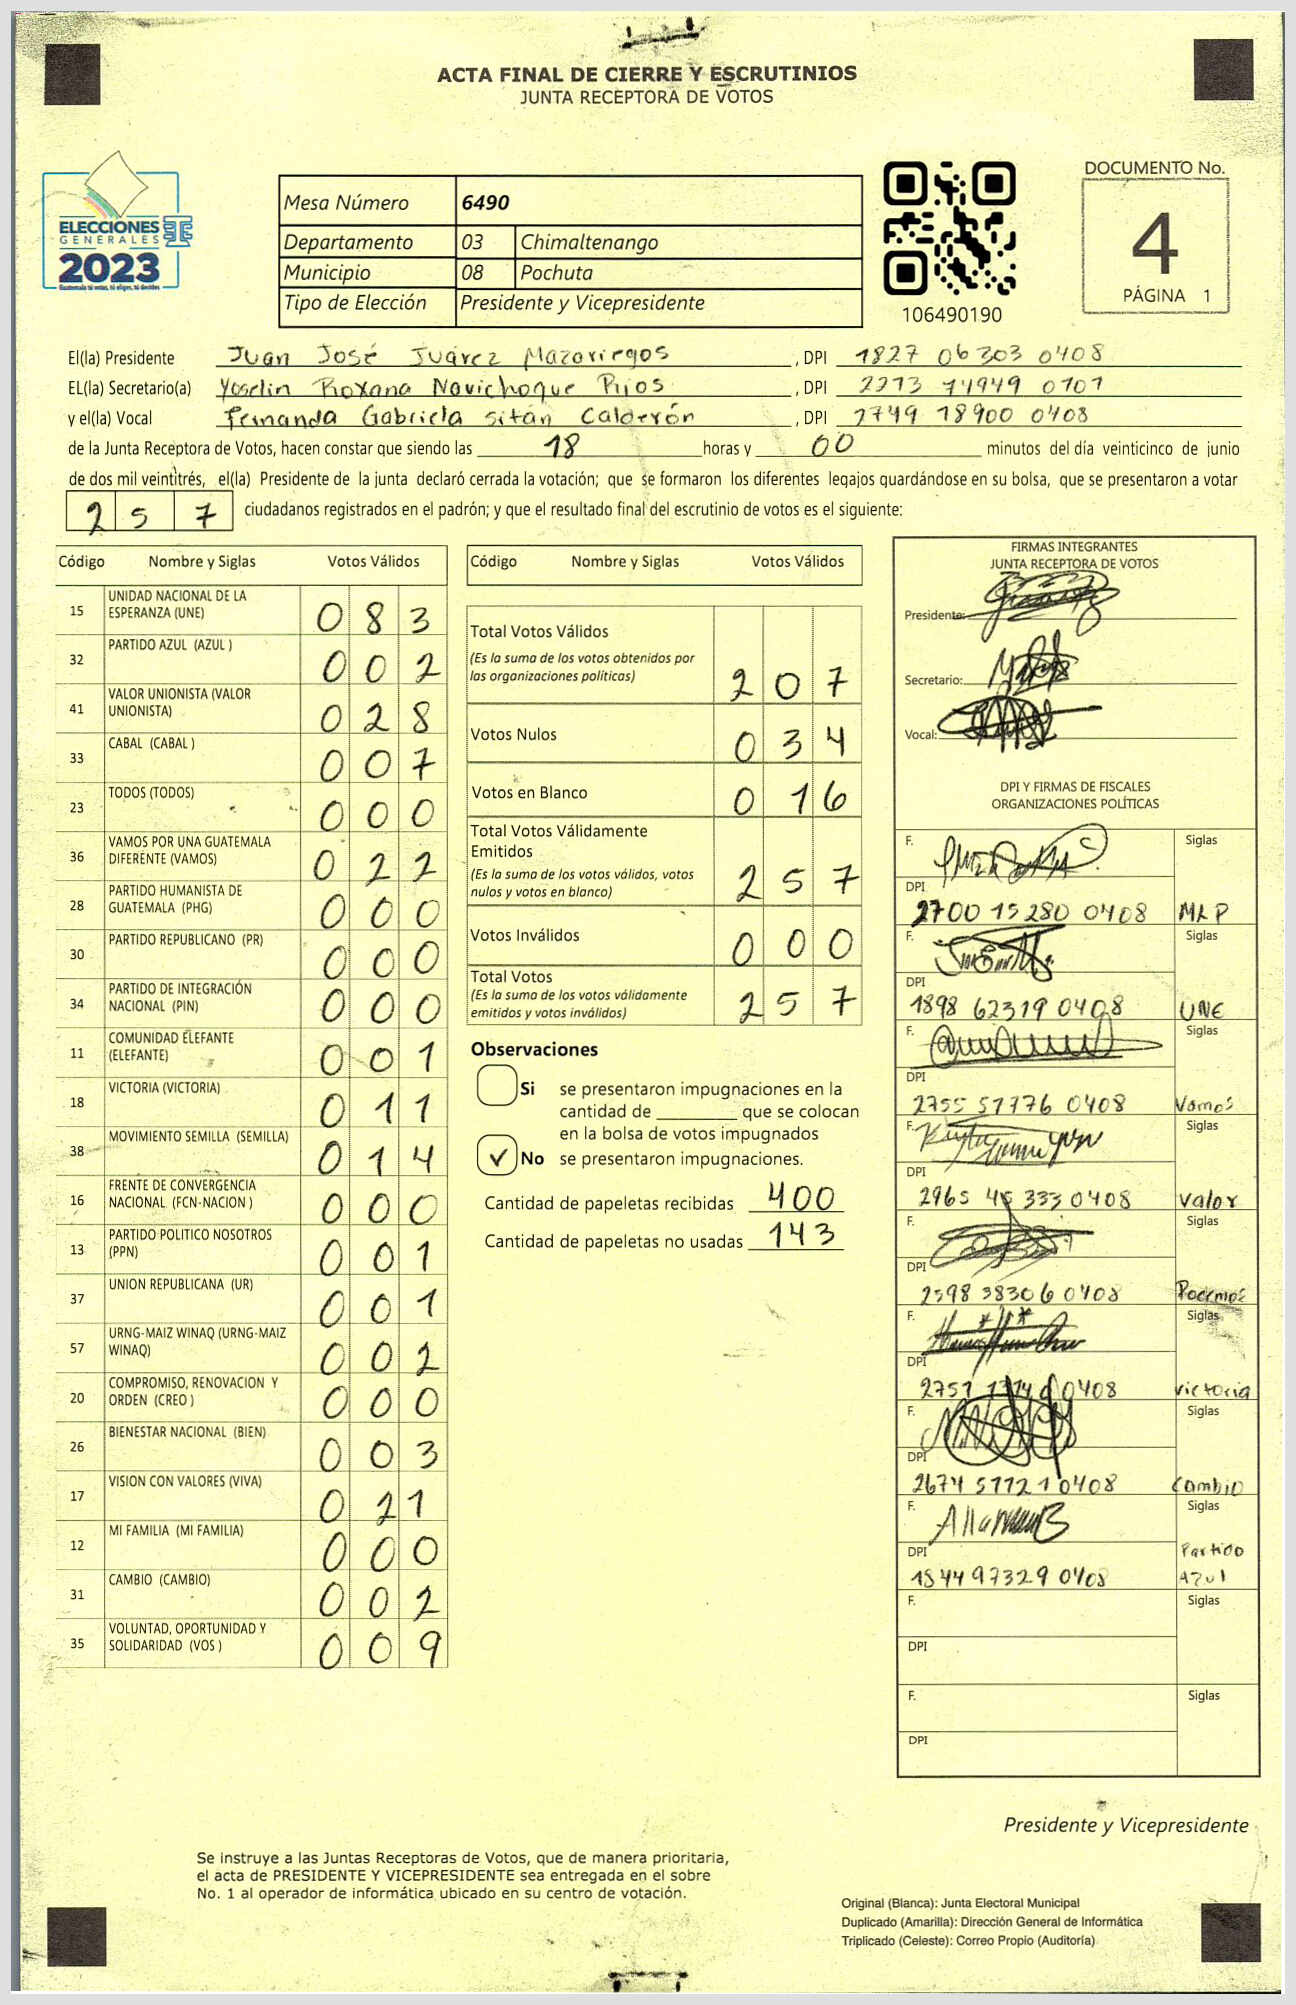 ACTA FINAL DE CIERRE Y ESCRUTINIOS
JUNTA RECEPTORA DE VOTOS
ELECCIONES
GENERALES
2023
Guatemala tú votas, tú eliges, tú decides
Mesa Número 6490
Departamento 03 Chimaltenango
Municipio 08 Pochuta
Tipo de Elección Presidente y Vicepresidente
106490190
DOCUMENTO No.
4
PÁGINA 1
El(la) Presidente Juan José Juárez Mazariegos, DPI 1827 06303 0408
EL(la) Secretario(a) Yoselin Roxana Navichoque Rijos, DPI 2273 74949 0101
y el(la) Vocal Fernanda Gabriela Sitán Calderón, DPI 2749 18900 0408
de la Junta Receptora de Votos, hacen constar que siendo las 18 horas y 00 minutos del día veinticinco de junio
de dos mil veintitrés, el(la) Presidente de la junta declaró cerrada la votación; que se formaron los diferentes legajos guardándose en su bolsa, que se presentaron a votar
257 ciudadanos registrados en el padrón; y que el resultado final del escrutinio de votos es el siguiente:
Código Nombre y Siglas Votos Válidos
15 UNIDAD NACIONAL DE LA ESPERANZA (UNE) 083
32 PARTIDO AZUL (AZUL ) 002
41 VALOR UNIONISTA (VALOR UNIONISTA) 028
33 CABAL (CABAL ) 007
23 TODOS (TODOS) 000
36 VAMOS POR UNA GUATEMALA DIFERENTE (VAMOS) 022
28 PARTIDO HUMANISTA DE GUATEMALA (PHG) 000
30 PARTIDO REPUBLICANO (PR) 000
34 PARTIDO DE INTEGRACIÓN NACIONAL (PIN) 000
11 COMUNIDAD ELEFANTE (ELEFANTE) 001
18 VICTORIA (VICTORIA) 011
38 MOVIMIENTO SEMILLA (SEMILLA) 014
16 FRENTE DE CONVERGENCIA NACIONAL (FCN-NACION ) 000
13 PARTIDO POLITICO NOSOTROS (PPN) 001
37 UNION REPUBLICANA (UR) 001
57 URNG-MAIZ WINAQ (URNG-MAIZ WINAQ) 002
20 COMPROMISO, RENOVACION Y ORDEN (CREO ) 000
26 BIENESTAR NACIONAL (BIEN) 003
17 VISION CON VALORES (VIVA) 021
12 MI FAMILIA (MI FAMILIA) 000
31 CAMBIO (CAMBIO) 002
35 VOLUNTAD, OPORTUNIDAD Y SOLIDARIDAD (VOS ) 009
Código Nombre y Siglas Votos Válidos
Total Votos Válidos 207
(Es la suma de los votos obtenidos por
las organizaciones políticas)
Votos Nulos 034
Votos en Blanco 016
Total Votos Válidamente
Emitidos 257
(Es la suma de los votos válidos, votos
nulos y votos en blanco)
Votos Inválidos 000
Total Votos 257
(Es la suma de los votos válidamente
emitidos y votos inválidos)
Observaciones
Si se presentaron impugnaciones en la
cantidad de ________ que se colocan
en la bolsa de votos impugnados
✓ No se presentaron impugnaciones.
Cantidad de papeletas recibidas 400
Cantidad de papeletas no usadas 143
FIRMAS INTEGRANTES
JUNTA RECEPTORA DE VOTOS
Presidente:
Secretario:
Vocal:
DPI Y FIRMAS DE FISCALES
ORGANIZACIONES POLÍTICAS
F. Siglas
DPI
2700 15280 0408 MLP
F. Siglas
DPI
1898 62319 0408 UNE
F. Siglas
DPI
2755 57776 0408 Vamos
F. Siglas
DPI
2965 45 333 0408 Valor
F. Siglas
DPI
2598 38306 0408 Podemos
F. Siglas
DPI
2751 0408 Victoria
F. Siglas
DPI
2674 57721 0408 Cambio
F. Siglas
DPI
1844 97329 0408 Partido Azul
F. Siglas
DPI
F. Siglas
DPI
Presidente y Vicepresidente
Se instruye a las Juntas Receptoras de Votos, que de manera prioritaria,
el acta de PRESIDENTE Y VICEPRESIDENTE sea entregada en el sobre
No. 1 al operador de informática ubicado en su centro de votación.
Original (Blanca): Junta Electoral Municipal
Duplicado (Amarilla): Dirección General de Informática
Triplicado (Celeste): Correo Propio (Auditoría)